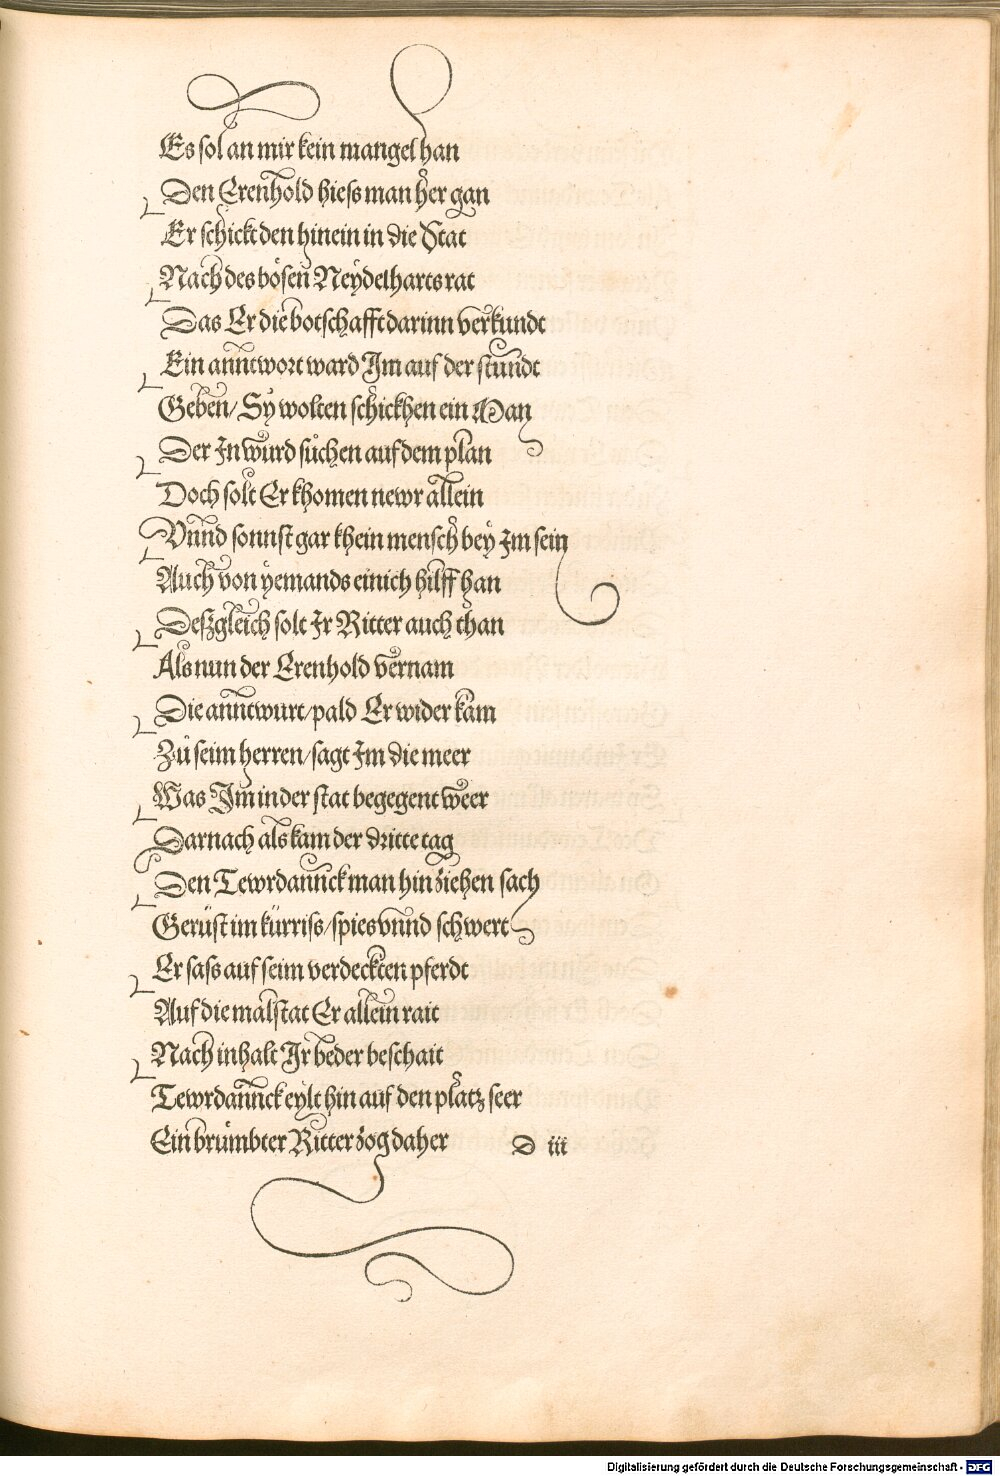 Es sol an mir kein mangel han
Den Erenhold hiess man her gan
Er schickt den hinein in die Stat
Nach des bösen Neÿdelharts rat
Das Er die botschafft darinn verkundt
Ein anntwort ward Im auf der stundt
Geben/ Sÿ wolten schickhen ein Man
Der In wůrd sůchen auf dem plan
Doch solt Er khomen newr allein
Vnnd sonnst gar khein mensch beÿ Im sein
Auch von ÿemands einich hilff han
Deßgleich solt Ir Ritter auch than
Als nun der Erenhold vernam
Die anntwurt/ pald Er wider kam
Zů seim herren/ sagt Im die meer
Was Im in der stat begegent weer
Darnach als kam der dritte tag
Den Tewrdannck man hin ziehen sach
Gerüst im kürriss/ spies vnnd schwert
Er sass auf seim verdeckten pferdt
Auf die malstat Er allein rait
Nach inhalt Ir beder beschait
Tewrdannck eÿlt hin auf den platz seer
Ein brůmbter Ritter zog daher D iii
Digitalisierung gefördert durch die Deutsche Forschungsgemeinschaft - DFG